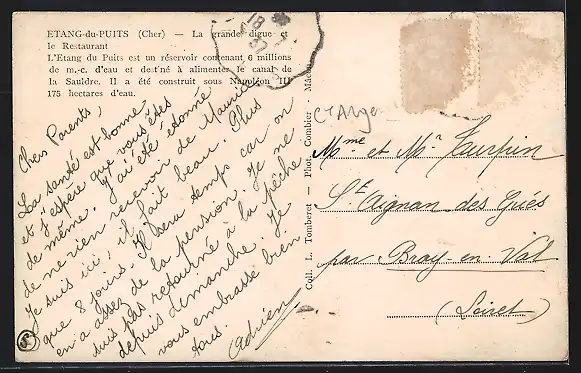 ETANG-du-PUITS (Cher) — La grande digue et
le Restaurant
L'Etang du Puits est un réservoir contenant 6 millions
de m.-c. d'eau et destiné à alimenter le canal de
la Sauldre. Il a été construit sous Napoléon III
175 hectares d'eau.
18
Chers Parents,
La santé est bonne
et j'espère que vous êtes
de même. J'ai été étonné
de ne rien recevoir de Maurice
Je suis ici, il fait beau. Plus
que 8 jours. Il sera temps car on
en a assez de la pension. Je ne
suis pas retourné à la pêche
depuis dimanche. Je
vous embrasse bien
tous.
Adrien
Coll. L. Tomberet — Phot. Combier - Mâc
Mme et Mr Turpin
St Aignan des Gués
par Bray-en-Val
(Loiret)